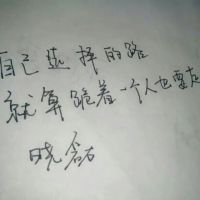 自己选择的路
就算跪着一个人也要走
晓磊